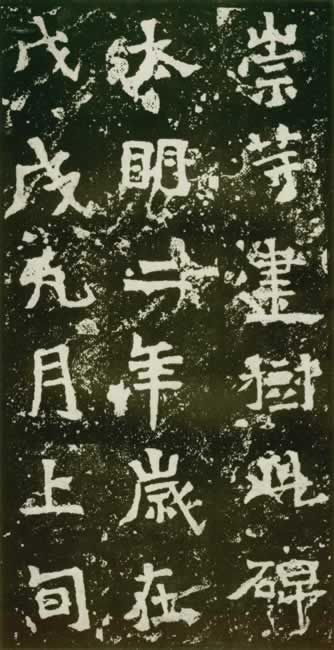 崇等建樹此碑
大明二年歲在
戊戌九月上旬